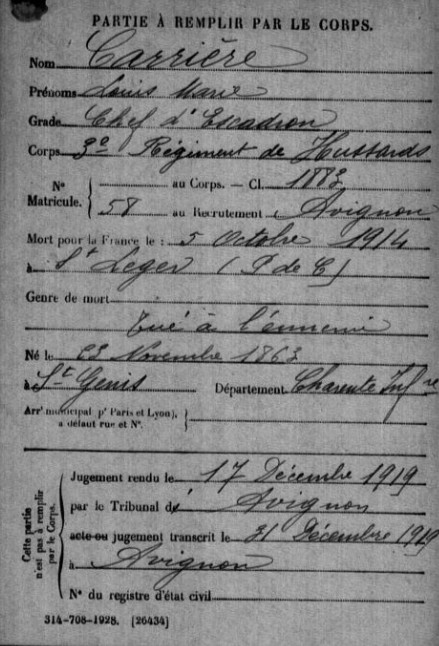 PARTIE À REMPLIR PAR LE CORPS.
Nom Carrière
Prénoms Louis Marie
Grade Chef d'Escadron
Corps 3e Régiment de Hussards
N° Matricule. { au Corps. — Cl. 1883
58 au Recrutement Avignon
Mort pour la France le : 5 Octobre 1914
à St Leger (P de C)
Genre de mort
tué à l'ennemi
Né le 23 Novembre 1863
à St Genis Département Charente Infre
Arrt municipal (pr Paris et Lyon), à défaut rue et N°. }
Cette partie n'est pas à remplir par le Corps.
Jugement rendu le 17 Décembre 1919
par le Tribunal d' Avignon
acte ou jugement transcrit le 31 Décembre 1919
à Avignon
N° du registre d'état civil
314-708-1928. [26434]